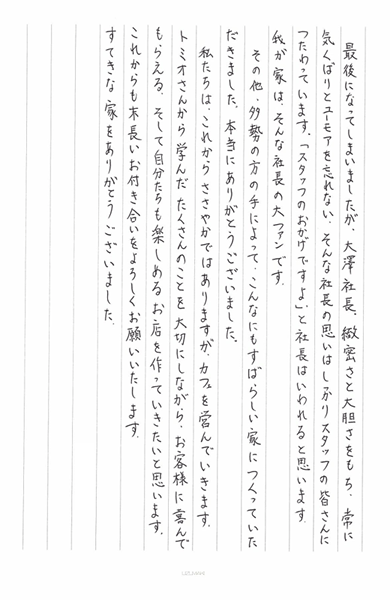 最後になってしまいましたが、大澤社長。緻密さと大胆さをもち、常に
気くばりとユーモアを忘れない。そんな社長の思いはしっかりスタッフの皆さんに
つたわっています。「スタッフのおかげですよ」と社長はいわれると思います。
我が家は、そんな社長の大ファンです。
その他、多勢の方の手によって、こんなにもすばらしい家につくっていた
だきました。本当にありがとうございました。
私たちは、これから ささやかではありますが、カフェを営んでいきます。
トミオさんから学んだ たくさんのことを大切にしながら、お客様に喜んで
もらえる、そして自分たちも楽しめるお店を作っていきたいと思います。
これからも末長いお付き合いをよろしくお願いいたします。
すてきな家をありがとうございました。